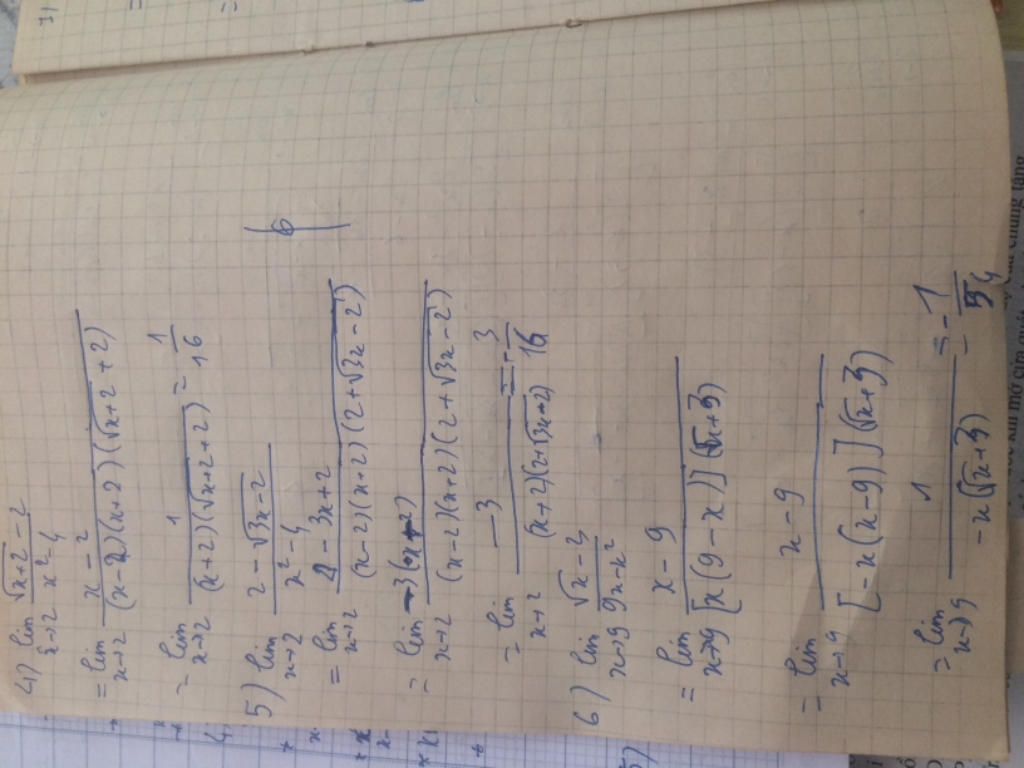 4) lim x→2 (√(x+2) - 2)/(x² - 4)
= lim x→2 (x - 2)/((x-2)(x+2)(√(x+2) + 2))
= lim x→2 1/((x+2)(√(x+2) + 2)) = 1/16
5) lim x→2 (2 - √(3x-2))/(x² - 4)
6
= lim x→2 (4 - 3x + 2)/((x-2)(x+2)(2+√(3x-2)))
= lim x→2 (-3(x-2))/((x-2)(x+2)(2+√(3x-2)))
= lim x→2 (-3)/((x+2)(2+√(3x-2))) = -3/16
6) lim x→9 (√x - 3)/(9x-x²)
= lim x→9 (x - 9)/([x(9-x)](√x+3))
= lim x→9 (x-9)/([-x(x-9)](√x+3))
= lim x→9 1/(-x(√x+3)) = -1/54